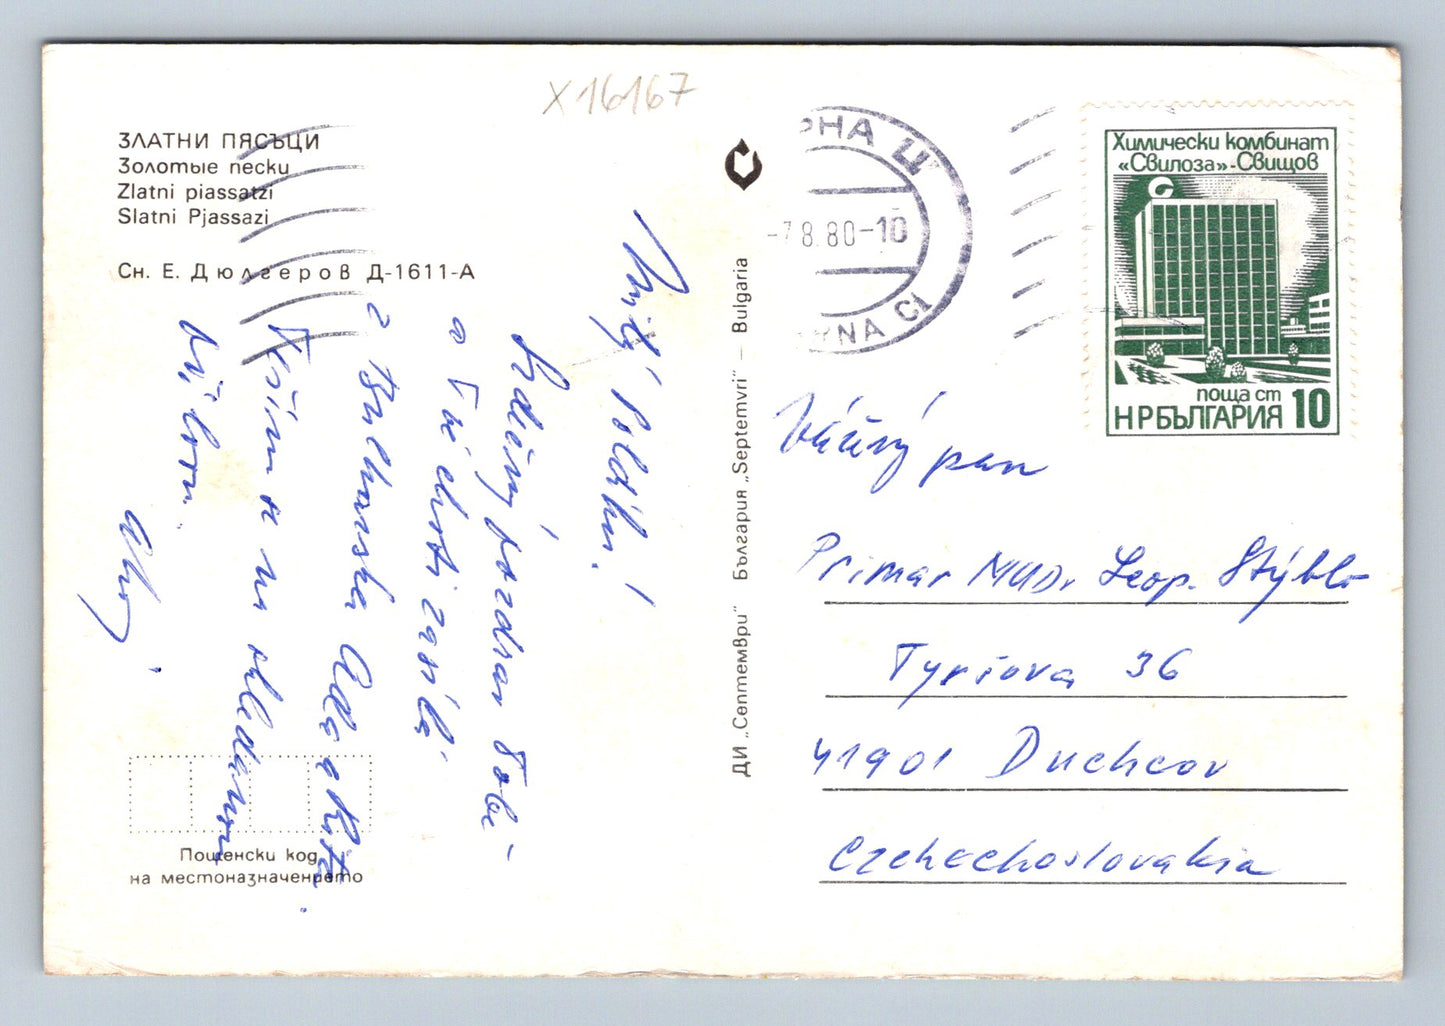 X16167
ЗЛАТНИ ПЯСЪЦИ
Золотые пески
Zlatni piassatzi
Slatni Pjassazi
Сн. Е. Дюлгеров Д-1611-А
Milý Poldíku!
Srdečný pozdrav Tobě
a Tvé choti zasílá
z Bulharska Olda a Rita.
Těším se na shledanou
Пощенски код
на местоназначението
ДИ „Септември" България „Septemvri" — Bulgaria
РНА Ц
-7.8.80-10
RNA C1
Химически комбинат
«Свилоза»-Свищов
поща ст
НРБЪЛГАРИЯ 10
Vážený pan
Primar MUDr Leop. Stýblo
Tyršova 36
41901 Duchcov
Czechechoslovakia